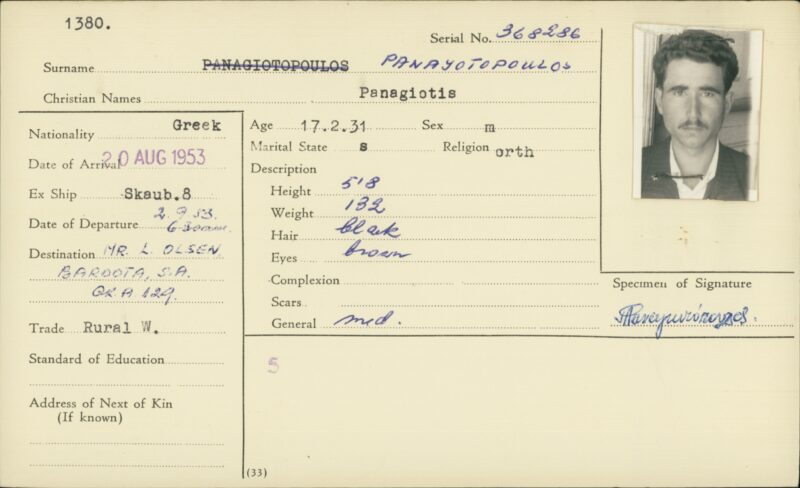 1380.
Serial No. 368286
Surname PANAGIOTOPOULOS PANAYOTOPOULOS
Christian Names Panagiotis
Nationality Greek
Date of Arrival 20 AUG 1953
Ex Ship Skaub.8
Date of Departure 2.9.53.
6.30am
Destination MR. L. OLSEN
BAROOTA, S.A.
GRA 129.
Trade Rural W.
Standard of Education
Address of Next of Kin
(If known)
Age 17.2.31 Sex m
Marital State s Religion orth
Description
Height 5'8
Weight 132
Hair black
Eyes brown
Complexion
Scars
General med.
Specimen of Signature
Παναγιωτόπουλος.
5
(33)